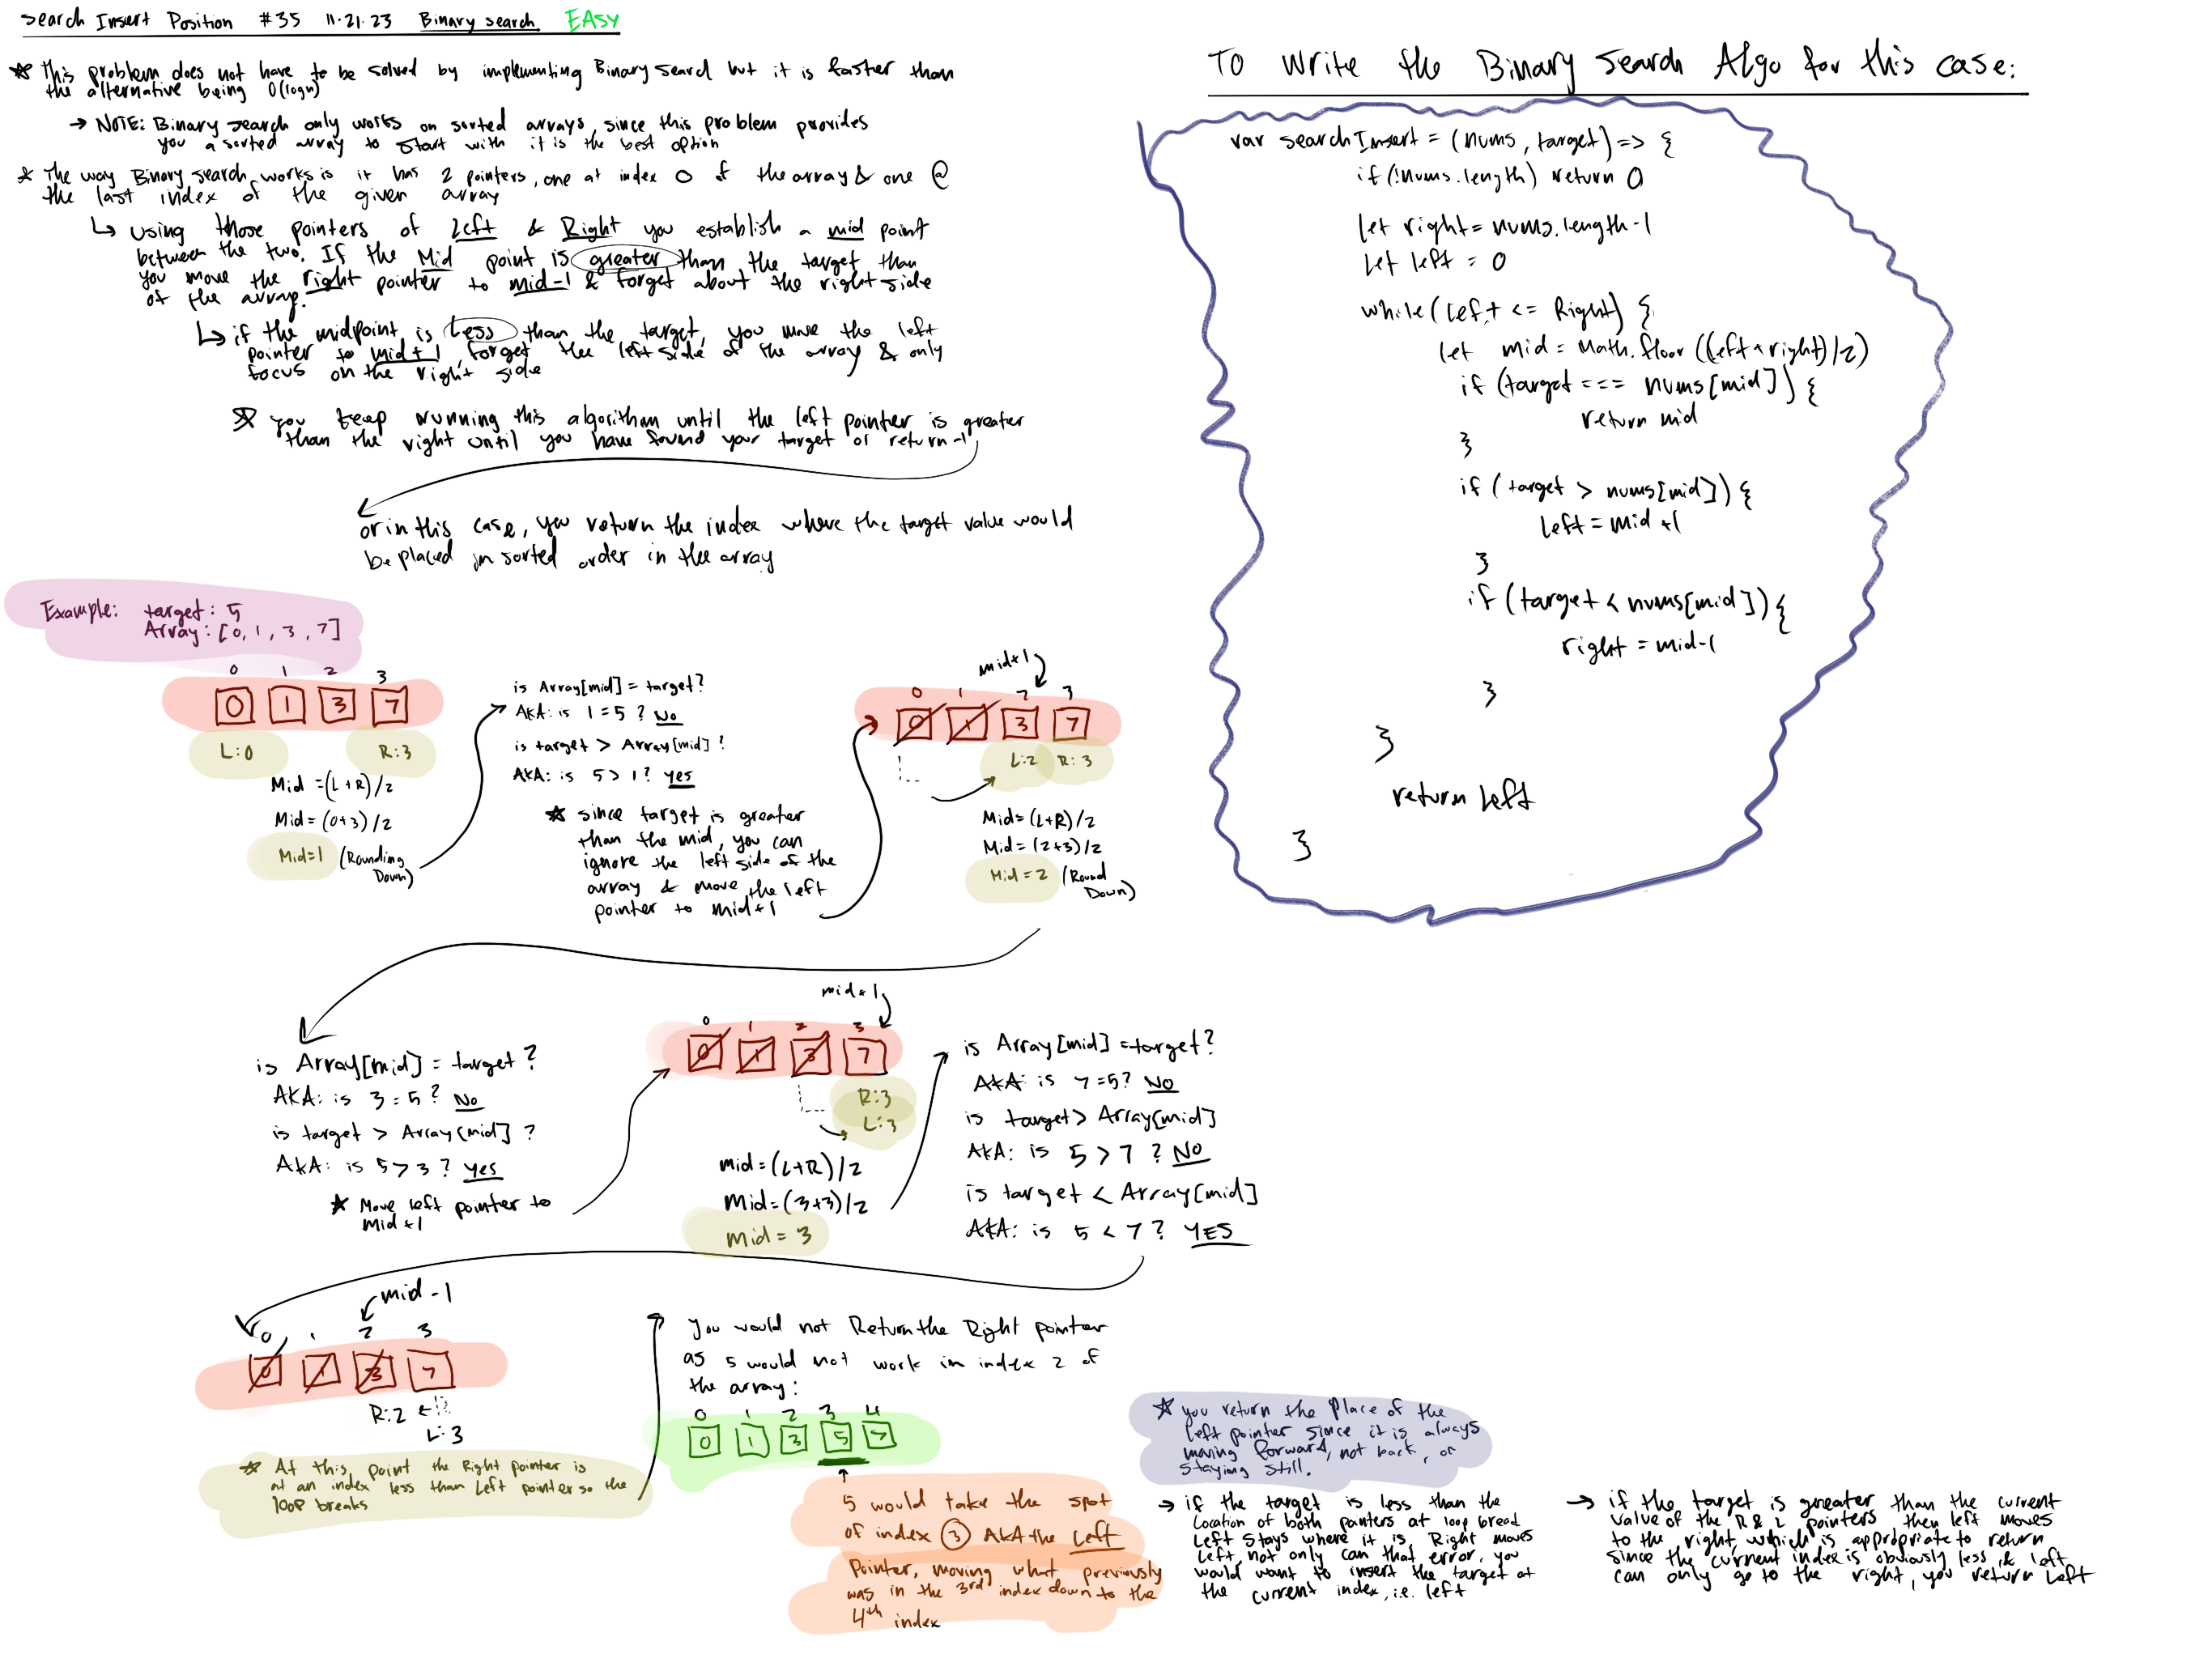 Search Insert Position #35 11·21·23 Binary search EASY
This problem does not have to be solved by implementing Binary Search but it is faster than
the alternative being O(logn)
→ NOTE: Binary search only works on sorted arrays, since this problem provides
you a sorted array to start with it is the best option
The way Binary search works is it has 2 pointers, one at index 0 of the array & one @
the last index of the given array
using those pointers of Left & Right you establish a mid point
between the two. If the Mid point is greater than the target than
you move the right pointer to mid-1 & forget about the right side
of the array.
if the midpoint is Less than the target, you move the left
pointer to mid+1, forget the left side of the array & only
focus on the right side
you keep running this algorithm until the left pointer is greater
than the right until you have found your target or return -1
or in this case, you return the index where the target value would
be placed in sorted order in the array
Example: target: 5
Array: [0, 1, 3, 7]
0 1 2 3
0 1 3 7
L:0 R:3
Mid =(L+R)/2
Mid= (0+3)/2
Mid=1 (Rounding
Down)
is Array[mid] = target?
AKA: is 1=5? No
is target > Array[mid]?
AKA: is 5>1? yes
since target is greater
than the mid, you can
ignore the left side of the
array & move the left
pointer to mid+1
mid+1
0 1 2 3
0 1 3 7
L:2 R:3
Mid=(L+R)/2
Mid=(2+3)/2
Mid=2 (Round
Down)
is Array[mid] = target?
AKA: is 3=5? No
is target > Array[mid]?
AKA: is 5>3? yes
Move left pointer to
mid+1
mid+1
0 1 2 3
0 1 3 7
R:3
L:3
mid=(L+R)/2
Mid=(3+3)/2
mid = 3
is Array[mid] =target?
AKA: is 7=5? No
is target> Array[mid]
AKA: is 5>7? No
is target < Array[mid]
AKA: is 5<7? YES
mid-1
0 1 2 3
0 1 3 7
R:2 ←
L:3
At this point the Right pointer is
at an index less than Left pointer so the
loop breaks
You would not Return the Right pointer
as 5 would not work in index 2 of
the array:
0 1 2 3 4
0 1 3 5 7
5 would take the spot
of index 3 AKA the Left
Pointer, moving what previously
was in the 3rd index down to the
4th index
you return the Place of the
Left pointer since it is always
moving forward, not back, or
staying still.
→ if the target is less than the
Location of both pointers at loop bread
Left stays where it is, Right moves
Left, not only can that error, you
would want to insert the target at
the current index, i.e. left
→ if the target is greater than the current
value of the R & L pointers then left moves
to the right, which is appropriate to return
since the current index is obviously less & left
can only go to the right, you return Left
To Write the Binary Search Algo for this case:
var searchInsert = (nums, target)=> {
if(!nums.length) return 0
let right=nums.length-1
let left = 0
while(left <= Right) {
let mid = Math.floor((left+right)/2)
if (target === nums[mid]) {
return mid
}
if (target > nums[mid]) {
left = mid +1
}
if (target < nums[mid]) {
right = mid-1
}
}
return left
}